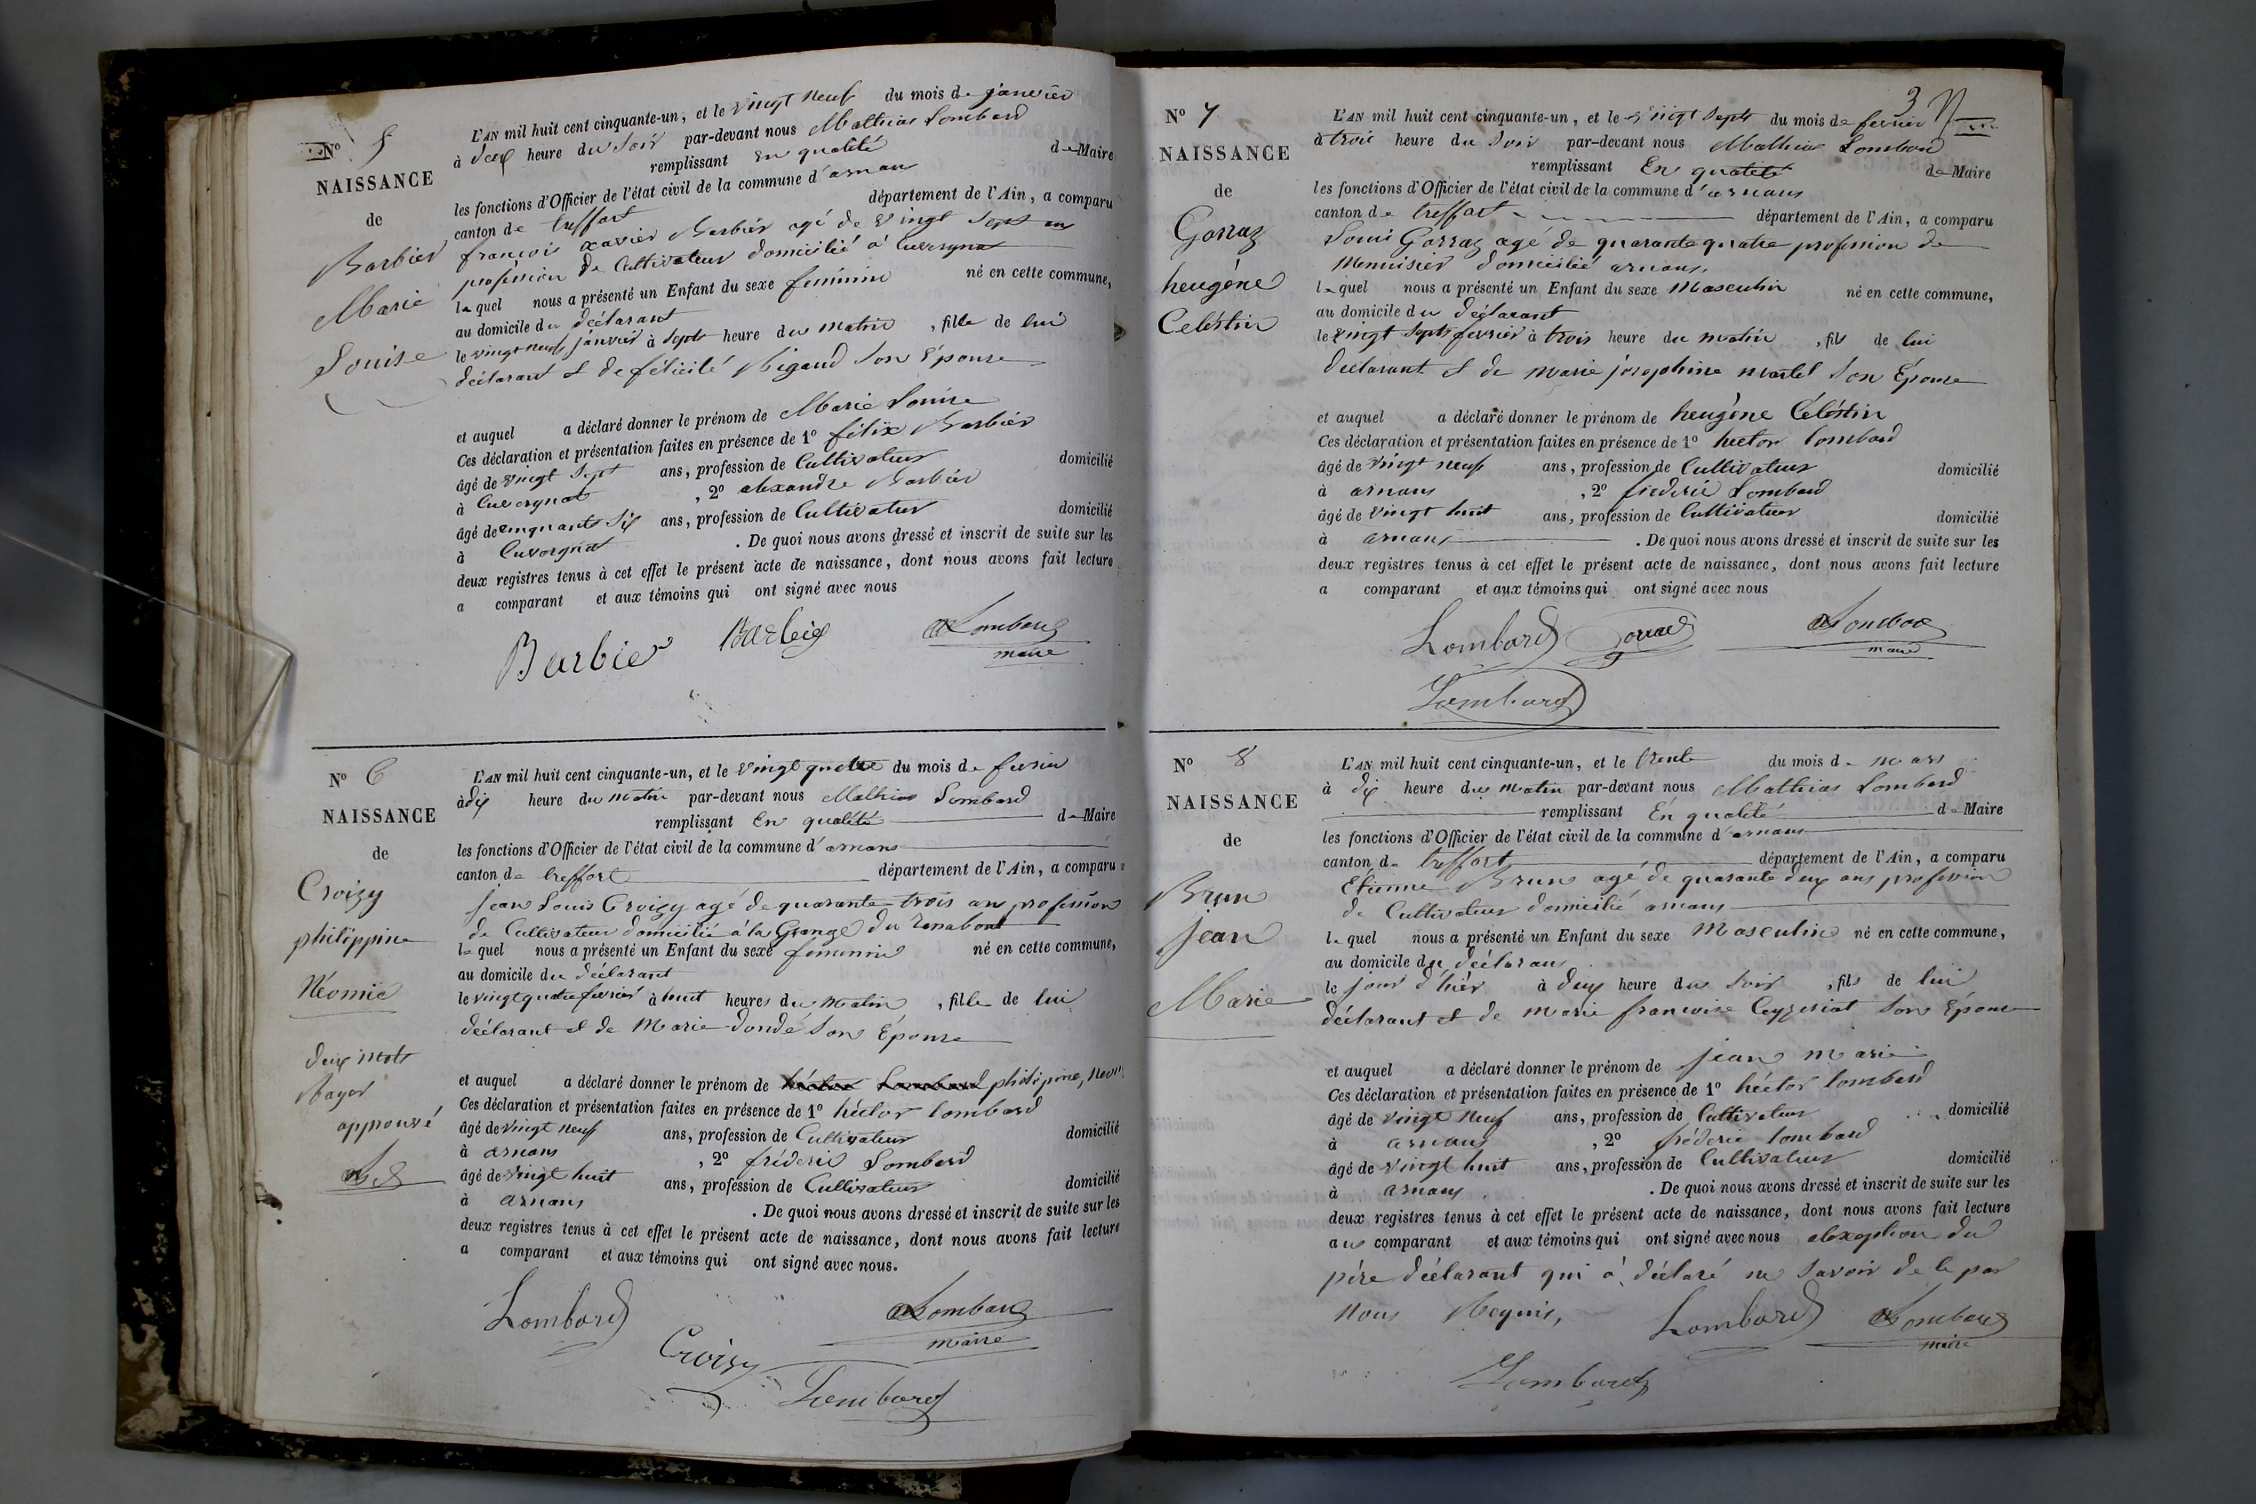 N° 5
NAISSANCE
de
Barbier
Marie
Louise
L'AN mil huit cent cinquante-un, et le vingt neuf du mois de janvier
à deux heure du Soir par-devant nous Mathias Lombard
remplissant En qualité de Maire
les fonctions d'Officier de l'état civil de la commune d'arnan
canton de treffort département de l'Ain, a comparu
francois xavier Barbier agé de vingt Sept an
profession de Cultivateur domicilié á Cuvergnat
lequel nous a présenté un Enfant du sexe feminin né en cette commune,
au domicile du déclarant
le vingt neuf janvier à Sept heure du matin, fille de lui
déclarant et de félicité Rigaud Son Epouse
et auquel a déclaré donner le prénom de Marie Louise
Ces déclaration et présentation faites en présence de 1° félix Barbier
âgé de vingt Sept ans, profession de Cultivateur domicilié
à Cuvergnat, 2° alexandre Barbier
âgé de cinquante Six ans, profession de Cultivateur domicilié
à Cuvergnat. De quoi nous avons dressé et inscrit de suite sur les
deux registres tenus à cet effet le présent acte de naissance, dont nous avons fait lecture
a comparant et aux témoins qui ont signé avec nous
Barbier Barbier Lombard
maire
N° 6
NAISSANCE
de
Croizy
philippine
Néomie
deux mots
Rayer
approuvé
L'AN mil huit cent cinquante-un, et le vingt quatre du mois de fevrier
à dix heure du matin par-devant nous Mathias Lombard
remplissant En qualité de Maire
les fonctions d'Officier de l'état civil de la commune d'arnans
canton de treffort département de l'Ain, a comparu
jean Louis Croizy agé de quarante trois ans profession
de Cultivateur domicilié á la Grange du
lequel nous a présenté un Enfant du sexe feminin né en cette commune,
au domicile du déclarant
le vingt quatre fevrier à huit heures du matin, fille de lui
déclarant et de Marie dondé Son Epouse
et auquel a déclaré donner le prénom de héctor Lombard philipine, Neo
Ces déclaration et présentation faites en présence de 1° héctor Lombard
âgé de vingt neuf ans, profession de Cultivateur domicilié
à arnans, 2° fréderic Lombard
âgé de vingt huit ans, profession de Cultivateur domicilié
à arnans. De quoi nous avons dressé et inscrit de suite sur les
deux registres tenus à cet effet le présent acte de naissance, dont nous avons fait lecture
a comparant et aux témoins qui ont signé avec nous.
Lombard Lombard
maire
Croizy
Lombard
3
N° 7
NAISSANCE
de
Gorraz
heugéne
Celéstin
L'AN mil huit cent cinquante-un, et le vingt Sept du mois de fevrier
à trois heure du Soir par-devant nous Mathias Lombard
remplissant En qualité de Maire
les fonctions d'Officier de l'état civil de la commune d'arnans
canton de treffort département de l'Ain, a comparu
Louis Gorraz agé de quarante quatre profession de
Menuisier domicilié arnans,
lequel nous a présenté un Enfant du sexe Masculin né en cette commune,
au domicile du déclarant
le vingt Sept fevrier à trois heure du matin, fils de lui
déclarant et de marie joséphine martel Son Epouse
et auquel a déclaré donner le prénom de heugéne Céléstin
Ces déclaration et présentation faites en présence de 1° hector lombard
âgé de vingt neuf ans, profession de Cultivateur domicilié
à arnans, 2° frederic Lombard
âgé de vingt huit ans, profession de Cultivateur domicilié
à arnans. De quoi nous avons dressé et inscrit de suite sur les
deux registres tenus à cet effet le présent acte de naissance, dont nous avons fait lecture
a comparant et aux témoins qui ont signé avec nous
Lombard Gorraz Lombard
maire
Lombard
N° 8
NAISSANCE
de
Brun
jean
Marie
L'AN mil huit cent cinquante-un, et le trente du mois de mars
à dix heure du matin par-devant nous Mathias Lombard
remplissant En qualité de Maire
les fonctions d'Officier de l'état civil de la commune d'arnans
canton de treffort département de l'Ain, a comparu
Etienne Brun agé de quarante deux ans profession
de Cultivateur domicilié arnans
lequel nous a présenté un Enfant du sexe Masculin né en cette commune,
au domicile du déclarant
le jour d'hier à deux heure du Soir, fils de lui
déclarant et de marie francoise Ceyzeriat Son Epouse
et auquel a déclaré donner le prénom de jean marie
Ces déclaration et présentation faites en présence de 1° héctor lombard
âgé de vingt neuf ans, profession de Cultivateur domicilié
à arnans, 2° fréderic lombard
âgé de vingt huit ans, profession de Cultivateur domicilié
à arnans. De quoi nous avons dressé et inscrit de suite sur les
deux registres tenus à cet effet le présent acte de naissance, dont nous avons fait lecture
au comparant et aux témoins qui ont signé avec nous alexeption du
pére déclarant qui á déclaré ne Savoir de le par
nous Requis, Lombard Lombard
maire
Lombard